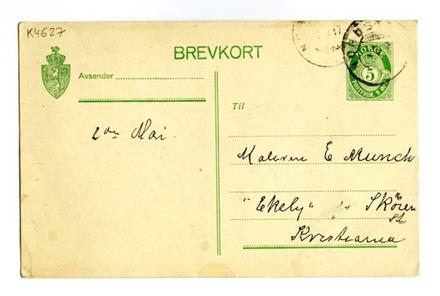 K4627
BREVKORT
Avsender
NORGE
5
Til
2den Mai.
Maleren E Munch
"Ekely" Skøien
st
Kristiania